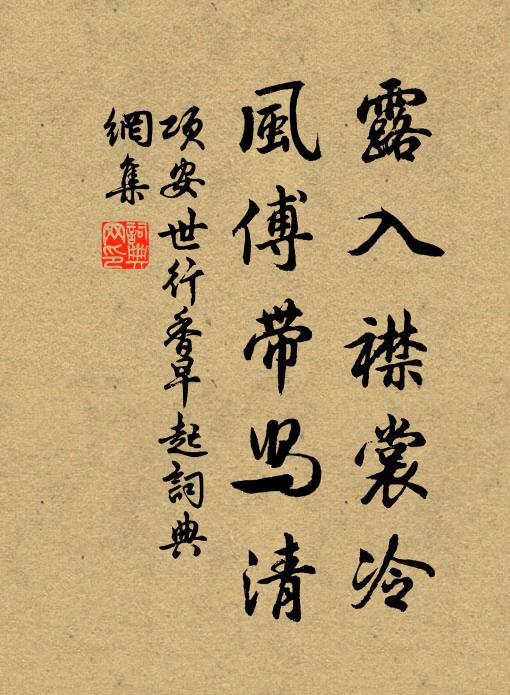 露入襟裳冷
風傅帶舄清
項安世行香早起詞典
網集
詞典
网印